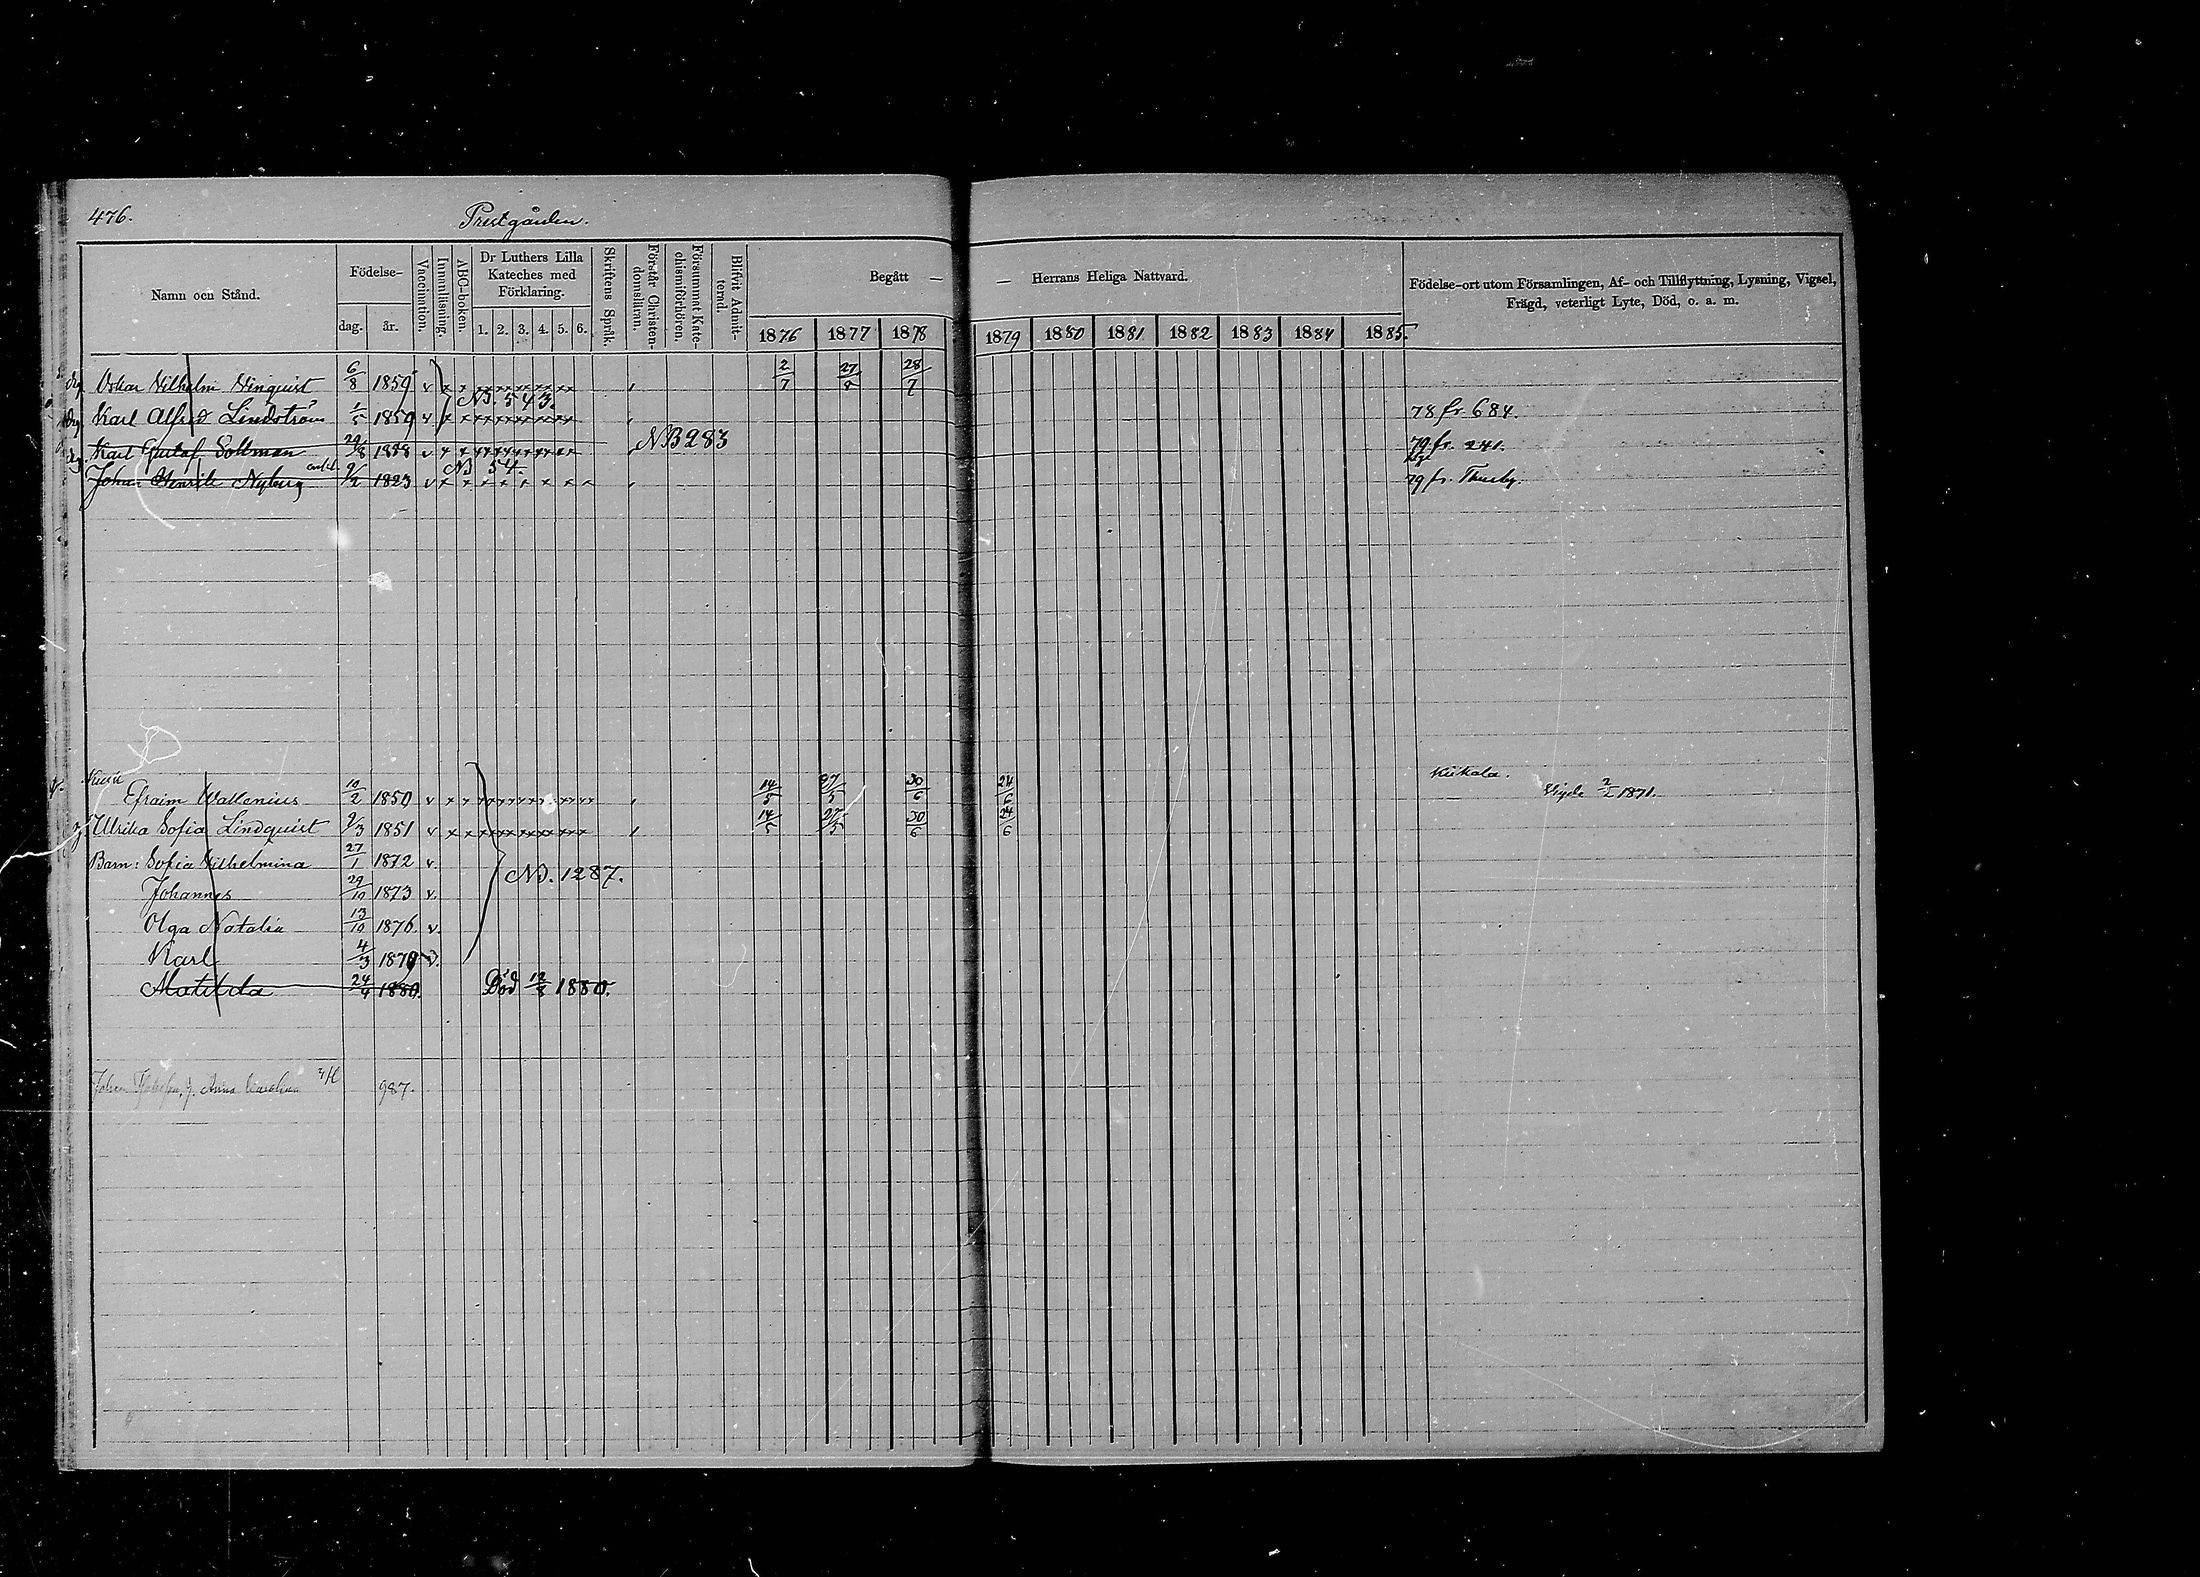 476. Prestgården.
Namn och Stånd. Födelse- dag. år. Vaccination. Innanläsning. ABC-boken. Dr Luthers Lilla Kateches med Förklaring. 1. 2. 3. 4. 5. 6. Skriftens Språk. Förstår Christendomsläran. Försummat Katechismiförhören. Blifvit Admitterad. Begått — — Herrans Heliga Nattvard. 1876 1877 1878 1879 1880 1881 1882 1883 1884 1885. Födelse-ort utom Församlingen, Af- och Tillflyttning, Lysning, Vigsel, Frägd, veterligt Lyte, Död, o. a. m.
Drg Oskar Vilhelm Vinquist 6/8 1859 v x x xxxxxxxxxx 2/7 28/7
N. 543.
Drg Karl Alfred Lindström 1/5 1859 v x xxxxxxxxxxx 78 fr 684.
drg. Karl Gustaf Soltman 29/8 v x x xxxxxxxxxx NB 283 79 fr. 241.
N 54.
Johan Henrik Nyberg 9/2 1823 v x x x x x x x x x 79 fr. Thusby.
Efraim Wallenius 10/2 1850 v x x xxxxxxxxxxx 14/5 27/5 30/6 24/6 Kiikala. Vigde 2/2 1871.
Ulrika Sofia Lindquist 9/3 1851 v x x xxxxxxxxxx 14/5 27/5 30/6 24/6
Barn: Sofia Vilhelmina 27/1 1872 v.
N. 1287.
Johannes 29/10 1873 v.
Olga Natalia 13/10 1876 v.
Karl 4/3 1879 v.
Matilda 24/4 1880. Död 12/8 1880.
Johan Anna Carolina 987.